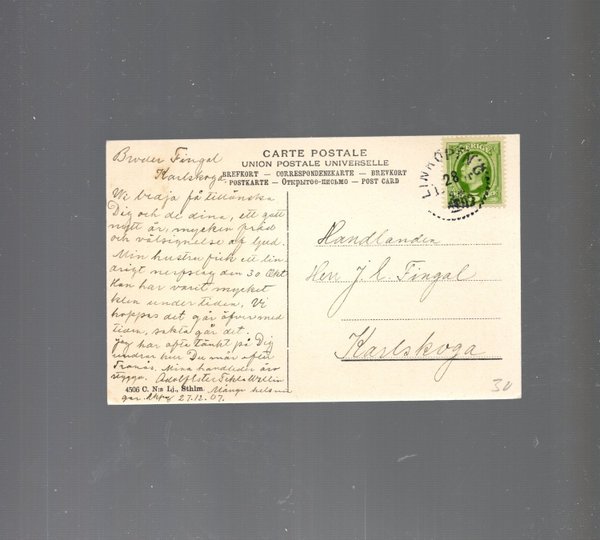 CARTE POSTALE
UNION POSTALE UNIVERSELLE
BREFKORT — CORRESPONDENZKARTE — BREVKORT
POSTKARTE — Открытое письмо — POST CARD
SVERIGE
LINKÖPING
28
Broder Fingal
Karlskoga
Vi bedja få tillönska
Dig och de dina, ett gott
nytt år, mycken frid
och välsignelse af Gud.
Min hustru fick ett lin-
drigt nerfslag den 30 Okt
Hon har varit mycket
klen under tiden, Vi
hoppas det går öfver med
tiden, sakta går det.
Jag har ofta tänkt på Dig
undrar hur Du mår efter
Mina handleder äro
stygga. Adolf
Många helsnin
gar 27.12.07.
4506 C. N:s Lj., Sthlm.
Handlanden
Herr J. L. Fingal
Karlskoga
30